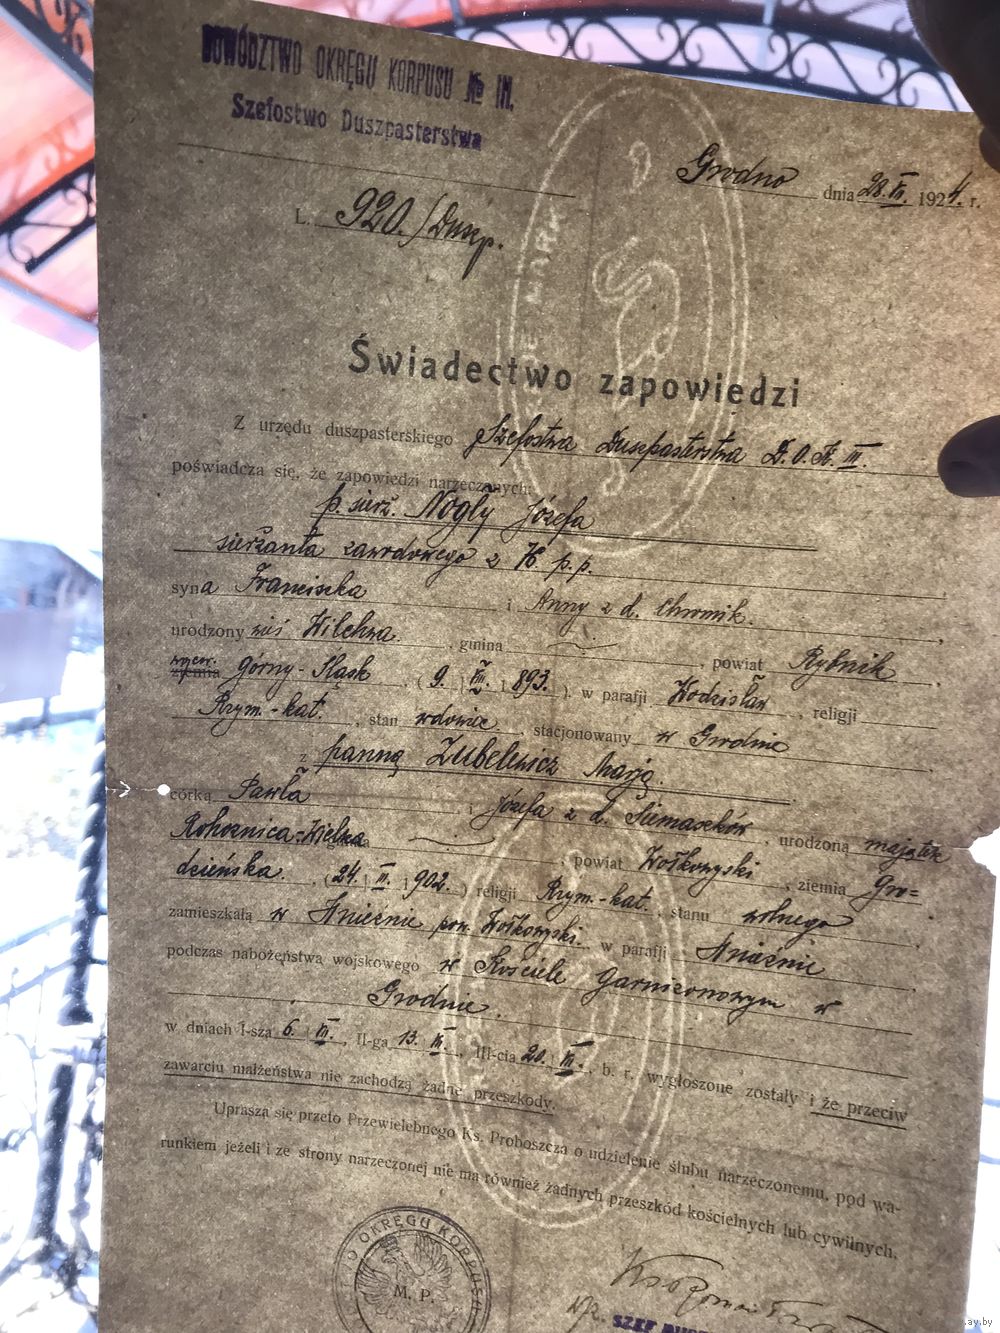 DOWÓDZTWO OKRĘGU KORPUSU № III.
Szefostwo Duszpasterstwa
Grodno dnia 28.VII. 1924. r.
L. 920./Duszp.
Świadectwo zapowiedzi
Z urzędu duszpasterskiego Szefostwa Duszpasterstwa D.O.K. III.
poświadcza się, że zapowiedzi narzeczonych:
p. sierż. Nogły Józefa
sierżanta zawodowego z 76 p.p.
syna Franciszka i Anny z d. Chromik.
urodzony wieś Wilchwa, gmina , powiat Rybnik,
ziemia Górny-Śląsk, (9. 893.), w parafji Wodzisław, religji
Rzym.-kat., stan wdowiec, stacjonowany w Grodnie,
z panną Zubelewicz Marją.
córką Pawła i Józefa z d. Siemaszków, urodzoną majątek
Rohoznica-Wielka, powiat Wołkowyski, ziemia Gro-
dzieńska., (24. 902.) religji Rzym.-kat., stanu wolnego
zamieszkałą w pow. Wołkowyski. w parafji
podczas nabożeństwa wojskowego w Kościele Garnizonowym w
Grodnie.
w dniach I-sza 6. , II-ga 13. , III-cia 20. , b. r. wygłoszone zostały i że przeciw
zawarciu małżeństwa nie zachodzą żadne przeszkody.
Uprasza się przeto Przewielebnego Ks. Proboszcza o udzielenie ślubu narzeczonemu, pod wa-
runkiem jeżeli i ze strony narzeczonej nie ma również żadnych przeszkód kościelnych lub cywilnych.
OKRĘGU KORPUSU
M. P.
SZEF
av.by